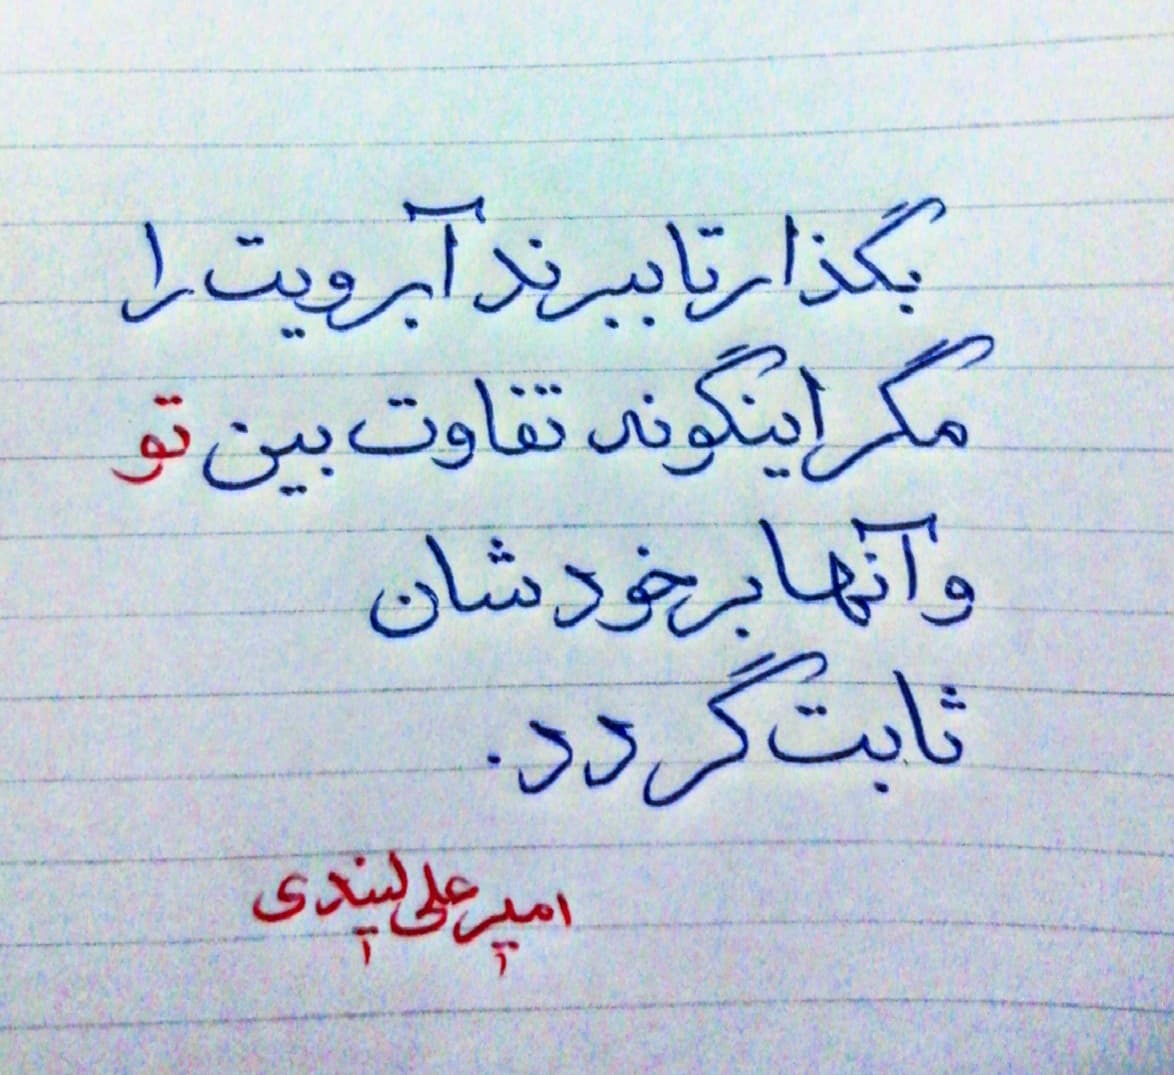 بگذار تا ببرند آبرویت را
مگر اینگونه تفاوت بین تو
و آنها بر خودشان
ثابت گردد.
امیر علی لیندی